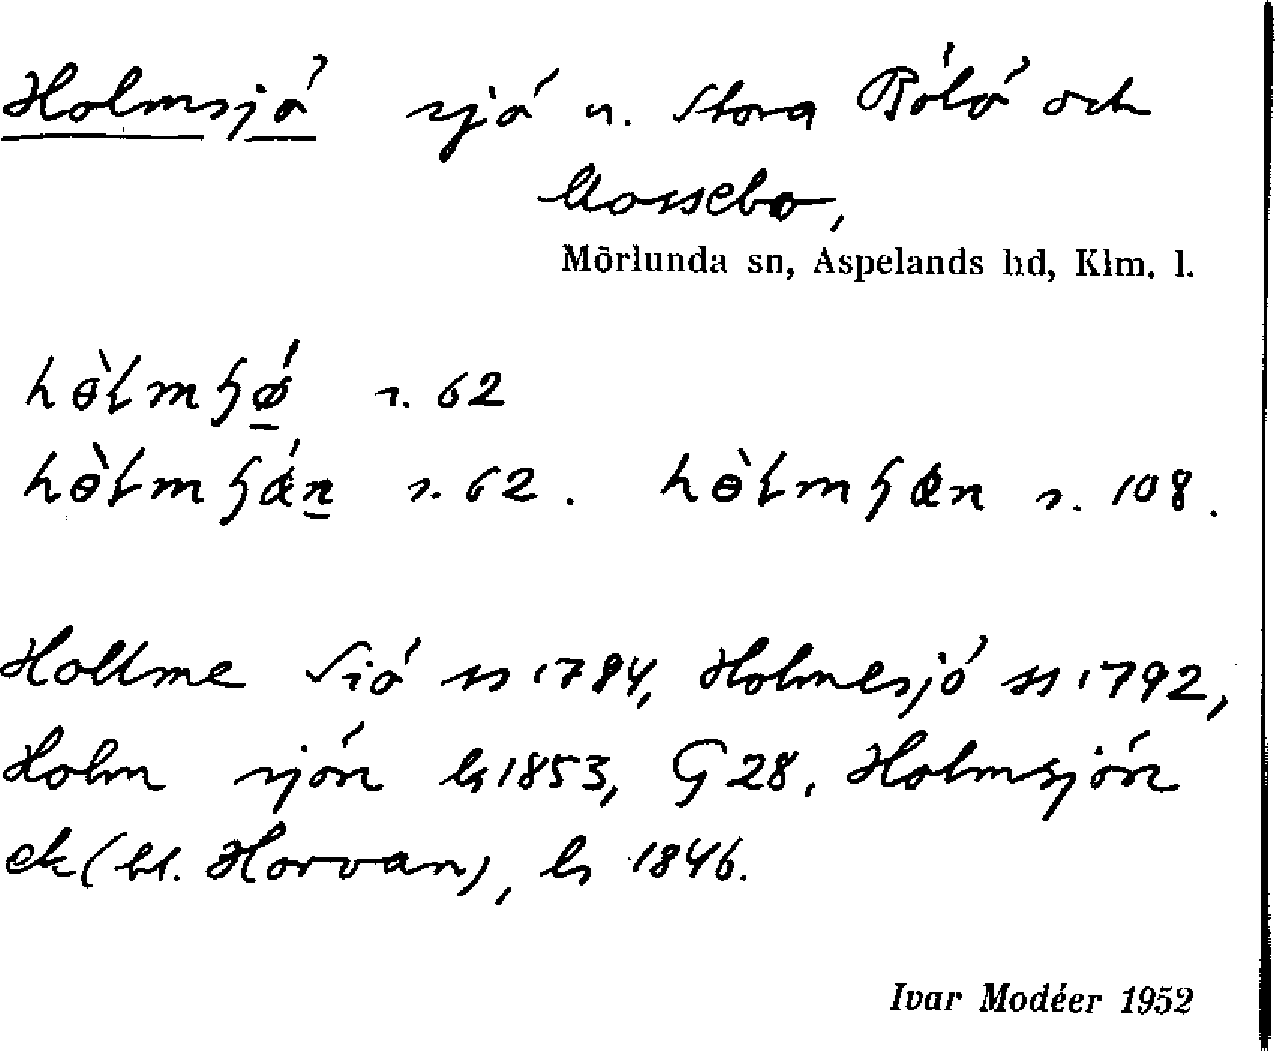 Holmsjö sjö n. Stora Rölö och
Mossebo,
Mörlunda sn, Aspelands hd, Klm. l.
hɵ̀lmʃǿ s. 62
hɵ̀lmʃǽn s. 62. hɵ̀lmʃæn s. 108.
Hollme Siö ss 1784, Holmesjö ss 1792,
Holm sjön ls 1853, G 28. Holmsjön
ek (bl. Horvan), ls 1846.
Ivar Modéer 1952